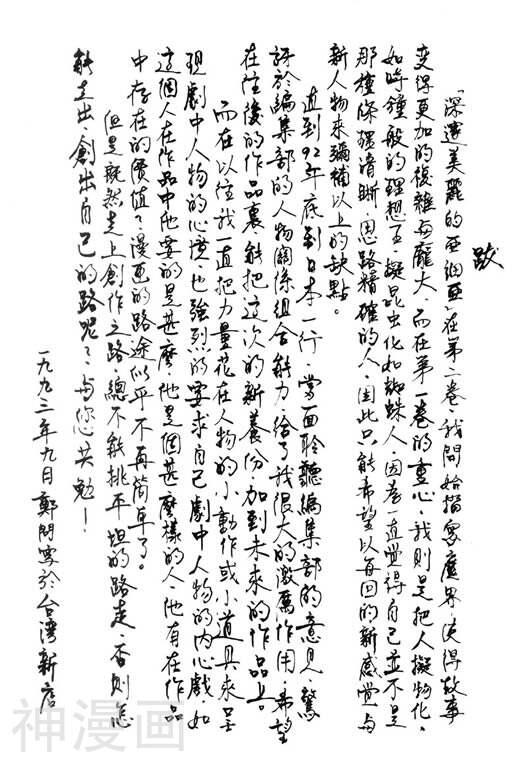 跋
「深邃美麗的亞細亞」在第二卷,我開始描寫魔界使得故事
變得更加的複雜與龐大,而在第一卷的重心,我則是把人擬物化,
如時鐘般的理想王,擬昆虫化如蜘蛛人,因為一直覺得自己並不是
那種條理清晰,思路精確的人,因此只能希望以每回的新感覺與
新人物來彌補以上的缺點。
直到92年底到日本一行,當面聆聽編集部的意見,驚
訝於編集部的人物關係組合能力,給了我很大的激勵作用,希望
在往後的作品裏,能把這次的新養份,加到未來的作品上。
而在以往我一直把力量花在人物的小動作或小道具來呈
現劇中人物的心境,也強烈的要求自己劇中人物的內心戲,如
這個人在作品中他要的是甚麼,他是個甚麼樣的人,他有在作品
中存在的價值?漫画的路途似乎不再簡單了。
但是既然走上創作之路,總不能挑平坦的路走,否則怎
能走出,創出自己的路呢?,與您共勉!
一九九三年九日鄭問寫於台灣新店
神漫画